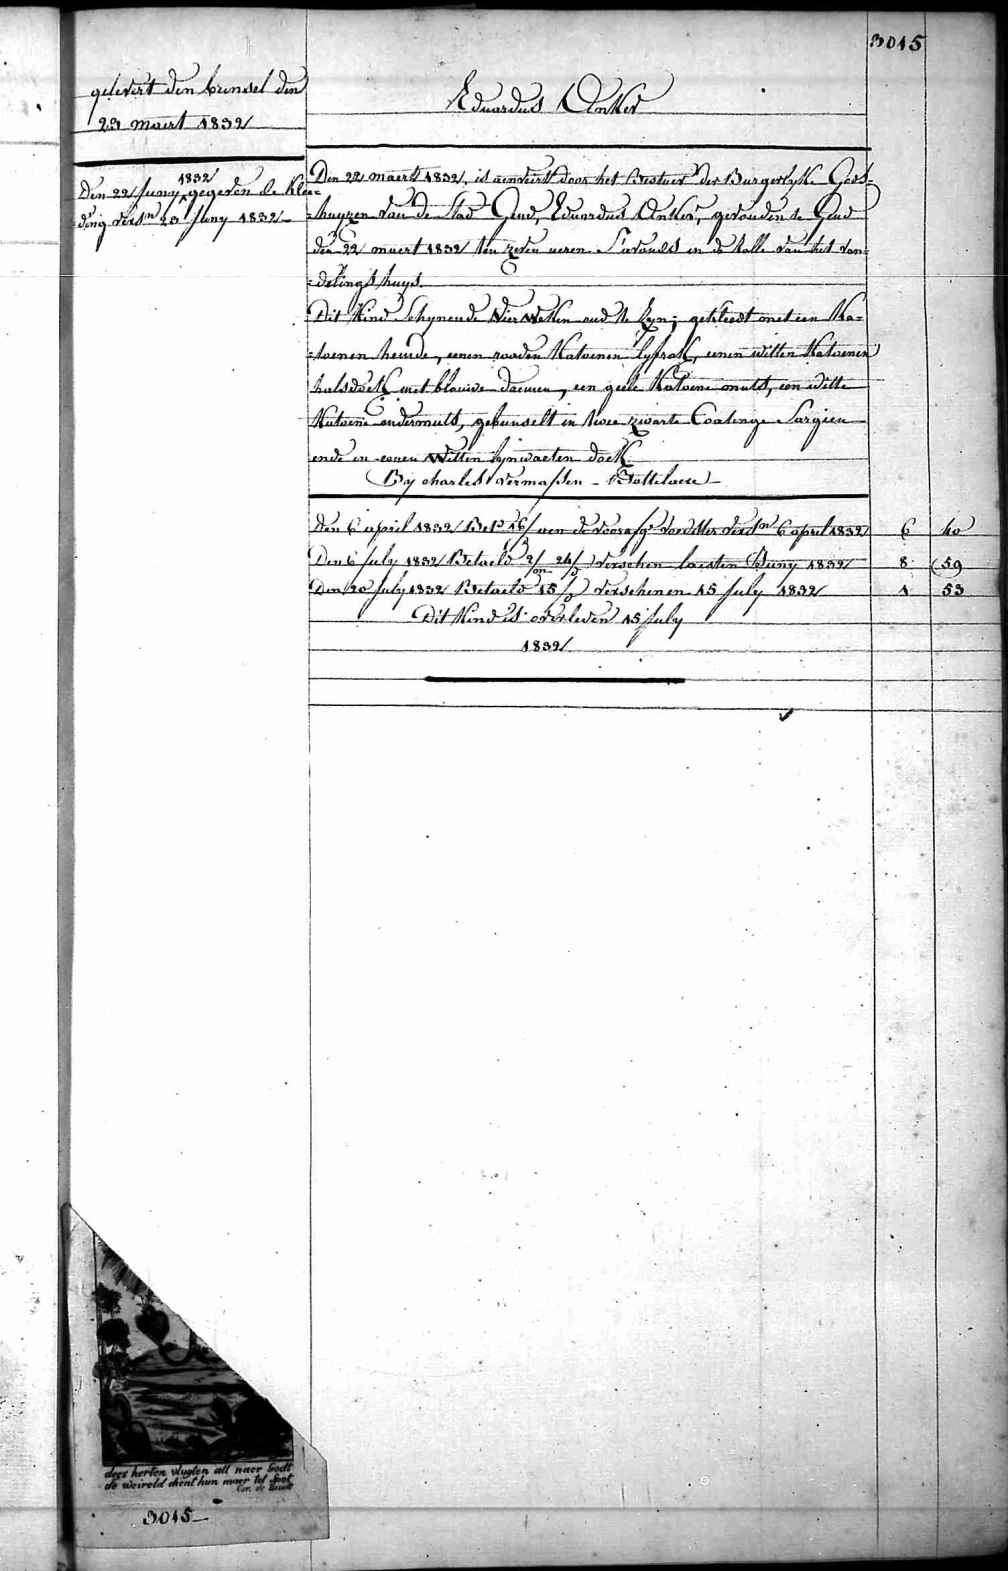 3015
gelevert den bunsel den
23 maert 1832
Eduardus Anker
1832
Den 22 Juny gegeven de klee=
=ding versn 23 Juny 1832
Den 22 maert 1832, is aenveirt door het Bestuer der Burgerlyke Gods=
=huyzen van de Stad Gend, Eduardus Anker, gevonden te Gend
den 22 maert 1832 ten zeven ueren S'avonds in de Rolle van het von=
=delingshuys.
Dit Kind schynende Vier Weken oud te Zyn; gekleedt met een Ka=
=toenen hemde, eenen rooden Katoenen lyfrok, eenen witten Katoenen
halsdoek met blauwe daemen, een geele Katoene muts, een witte
Katoene ondermuts, gebunselt in twee zwarte Coatinge Sargien
ende in eenen Witten lynwaeten doek
By charles Vermassen - Bottelaere
Den 6 april 1832 Bet 16/ aen de voorsz. versn 6 april 1832 6 40
Den 6 July 1832 Betaeld 2/m 24/d verschen laesten Juny 1832 8 59
Den 20 July 1832 Betaeld 15/d verschenen 15 July 1832 1 53
Dit Kind is overleden 15 July
1832
dees herten vlugten all naer Godt
de weireld dient hun maer tot spot
3015